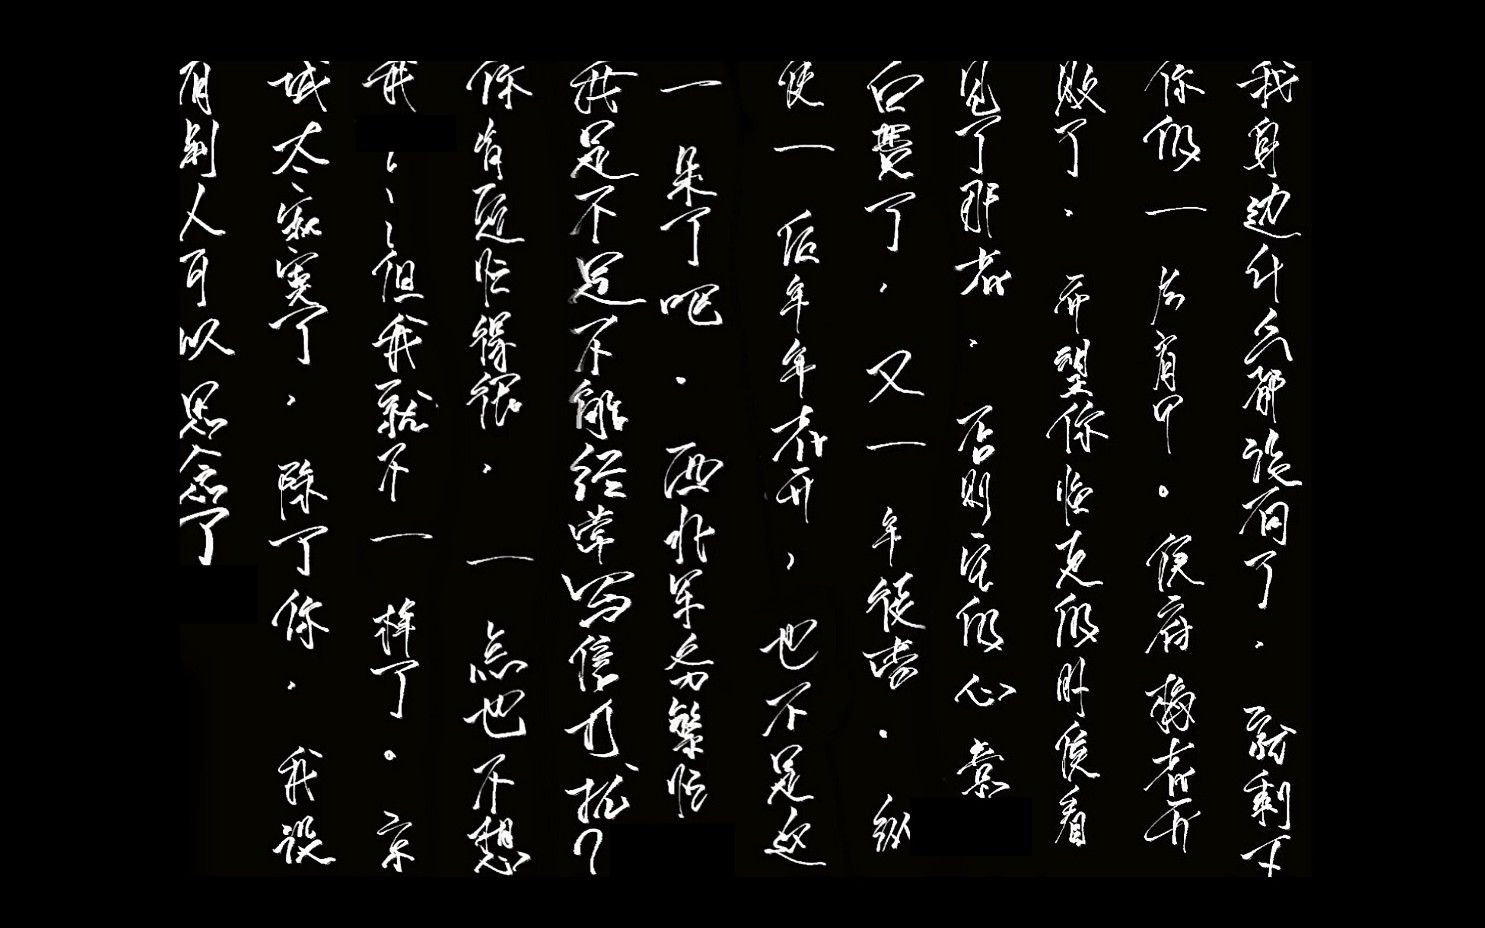 我身边什么都没有了，就剩下
你的一片。侯府梅花开
败了，希望你临走的时候看
见了那花，否则它的心意
白费了，又一年徒劳，纵
使一后年年花开，也不是这
一朵了吧，西北军务繁忙
我是不是不能经常写信打扰？
你肯定忙得很，一点也不想
我、、、但我就不一样了。京
城太寂寞了，除了你，我没
有别人可以思念了